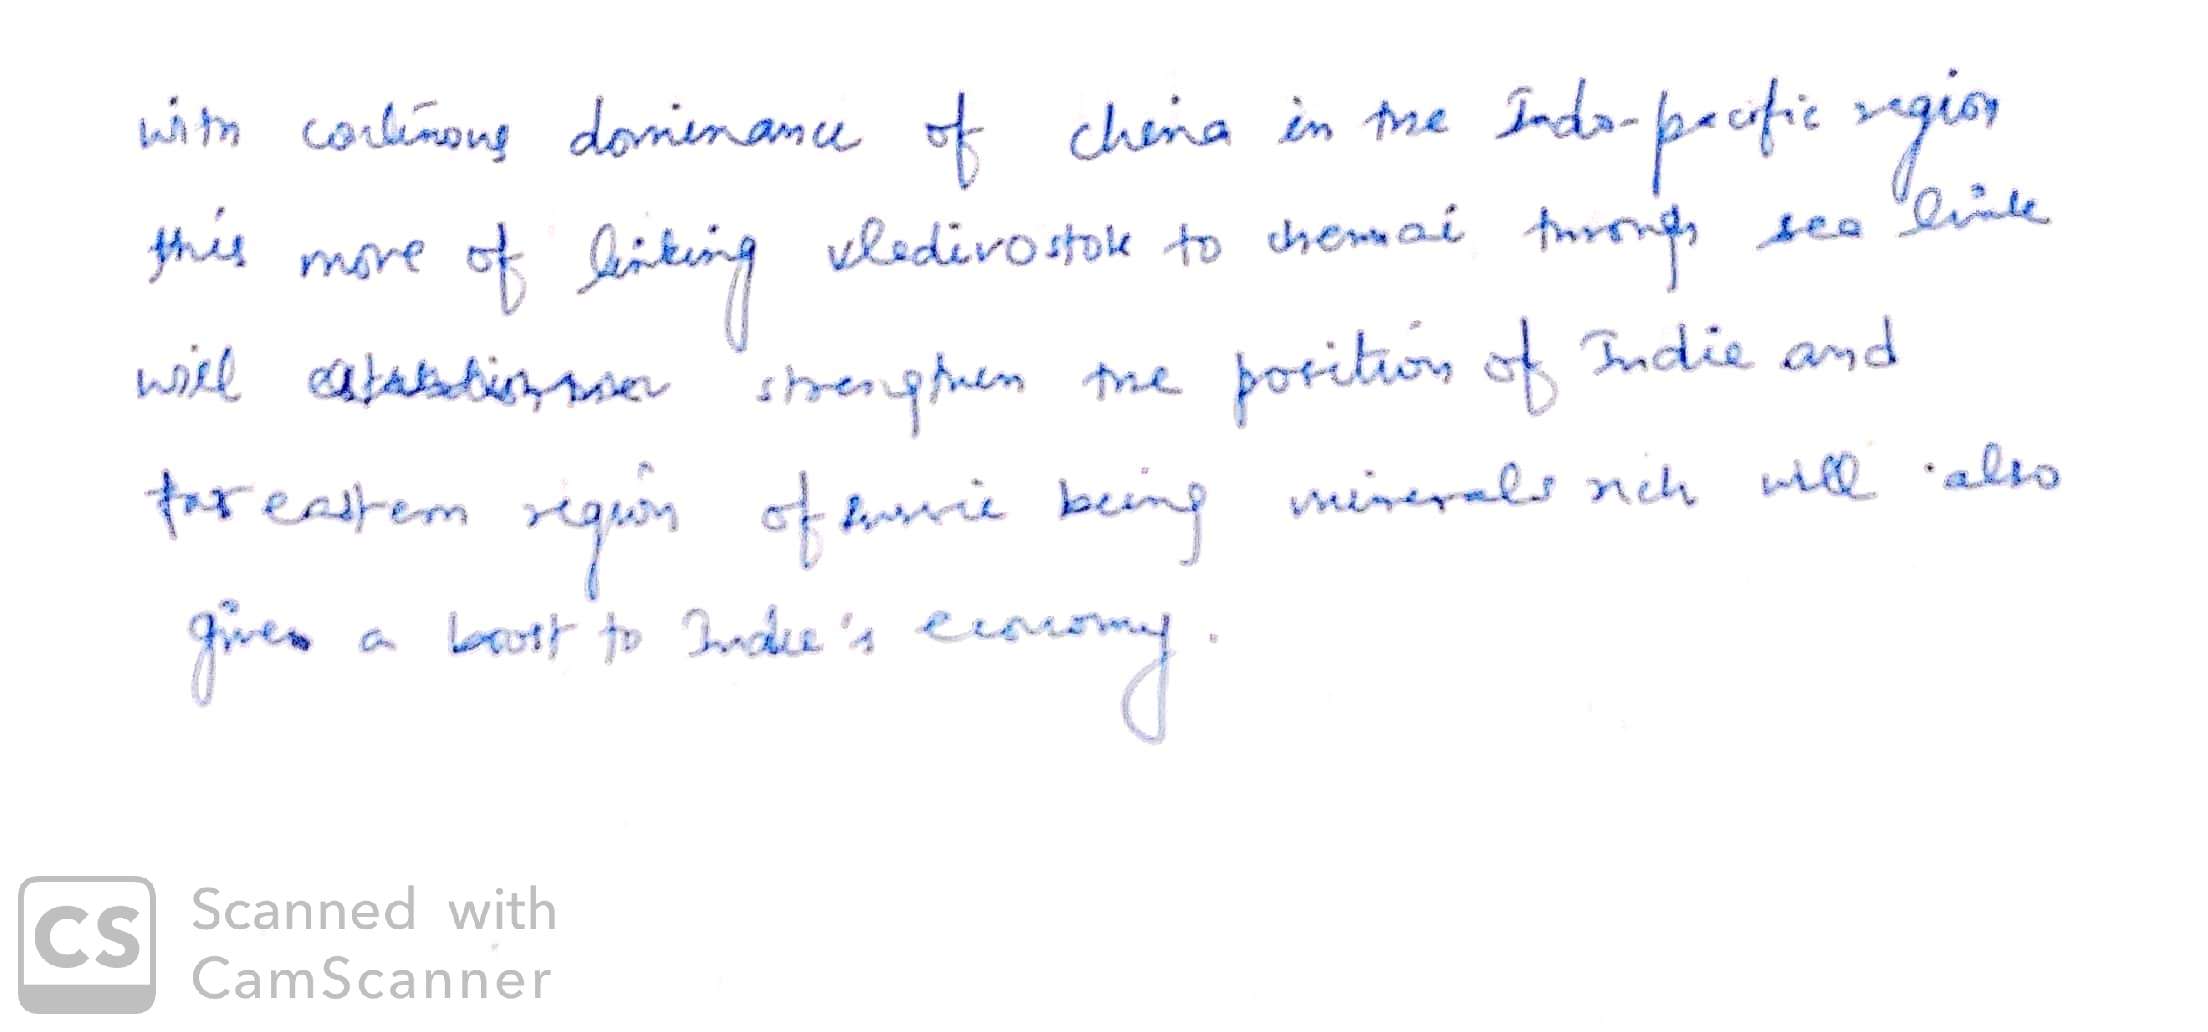 with continous dominance of china in the Indo-pacific region
this move of linking vladivostok to chennai through sea link
will strengthen the position of India and
far eastern region of russia being minerals rich will also
given a boost to India's economy.
CS Scanned with
CamScanner